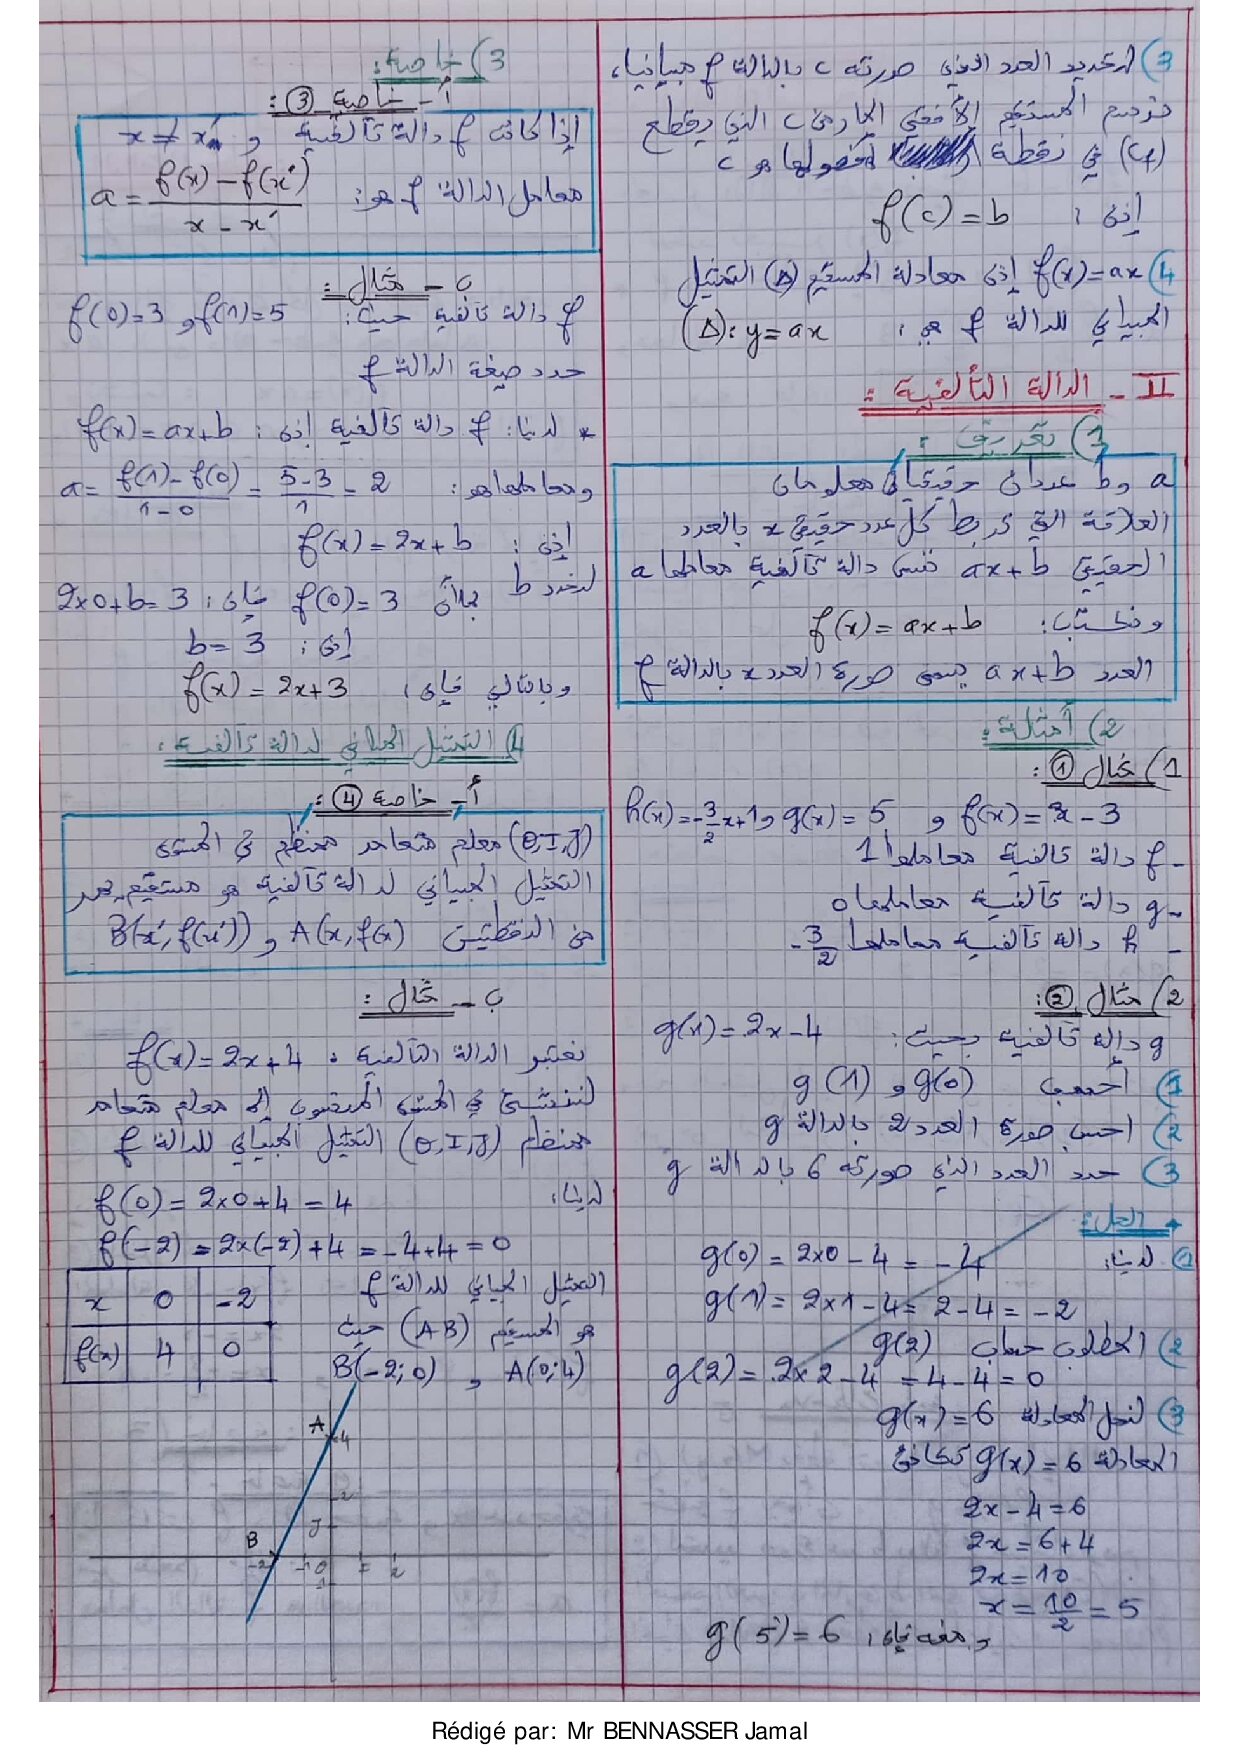 3) لتحديد العدد الذي صورته c بالدالة f مبيانيا،
نرسم المستقيم الأفقي المار من c الذي يقطع
(Cf) في نقطة أفصولها هو c
إذن : f(c)=b
4) f(x)=ax إذن معادلة المستقيم (Δ) التمثيل
المبياني للدالة f هي : (Δ): y=ax
II - الدالة التآلفية :
1) تعريف :
a و b عددان حقيقيان معلومان
العلاقة التي تربط كل عدد حقيقي x بالعدد
الحقيقي ax+b تسمى دالة تآلفية معاملها a
ونكتب: f(x)=ax+b
العدد ax+b يسمى صورة العدد x بالدالة f
2) أمثلة :
1) مثال ① :
f(x)=x-3 و g(x)=5 و h(x)=-3/2x+1
- f دالة تآلفية معاملها 1
- g دالة تآلفية معاملها 0
- h دالة تآلفية معاملها -3/2
2) مثال ② :
g دالة تآلفية بحيث: g(x)=2x-4
1) أحسب g(0) و g(1)
2) احسب صورة العدد 2 بالدالة g
3) حدد العدد الذي صورته 6 بالدالة g
* الحل :
1) لدينا: g(0)=2x0-4=-4
g(1)=2x1-4=2-4=-2
2) المطلوب حساب g(2)
g(2)=2x2-4=4-4=0
3) لنحل المعادلة g(x)=6
المعادلة g(x)=6 تكافئ
2x-4=6
2x=6+4
2x=10
x=10/2=5
ومنه فإن: g(5)=6
3) خاصية :
أ- خاصية ③ :
إذا كانت f دالة تآلفية و x≠x'
معامل الدالة f هو: a=(f(x)-f(x'))/(x-x')
ب - مثال :
f دالة تآلفية حيث: f(1)=5 و f(0)=3
حدد صيغة الدالة f
* لدينا: f دالة تآلفية إذن: f(x)=ax+b
ومعاملها هو: a=(f(1)-f(0))/(1-0)=(5-3)/1=2
إذن : f(x)=2x+b
لنحدد b بما أن f(0)=3 فإن: 2x0+b=3
إذن : b=3
وبالتالي فإن: f(x)=2x+3
4) التمثيل المبياني لدالة تآلفية :
أ- خاصية ④ :
(O,I,J) معلم متعامد ممنظم في المستوى
التمثيل المبياني لدالة تآلفية هو مستقيم يمر
من النقطتين A(x,f(x)) و B(x',f(x'))
ب - مثال :
نعتبر الدالة التآلفية : f(x)=2x+4
لننشئ في المستوى المنسوب إلى معلم متعامد
ممنظم (O,I,J) التمثيل المبياني للدالة f
لدينا: f(0)=2x0+4=4
f(-2)=2x(-2)+4=-4+4=0
التمثيل المبياني للدالة f
هو المستقيم (AB) حيث
A(0;4) و B(-2;0)
x 0 -2
f(x) 4 0
A 4
2
J
B
-2 -1 O I 2
-1
Rédigé par: Mr BENNASSER Jamal